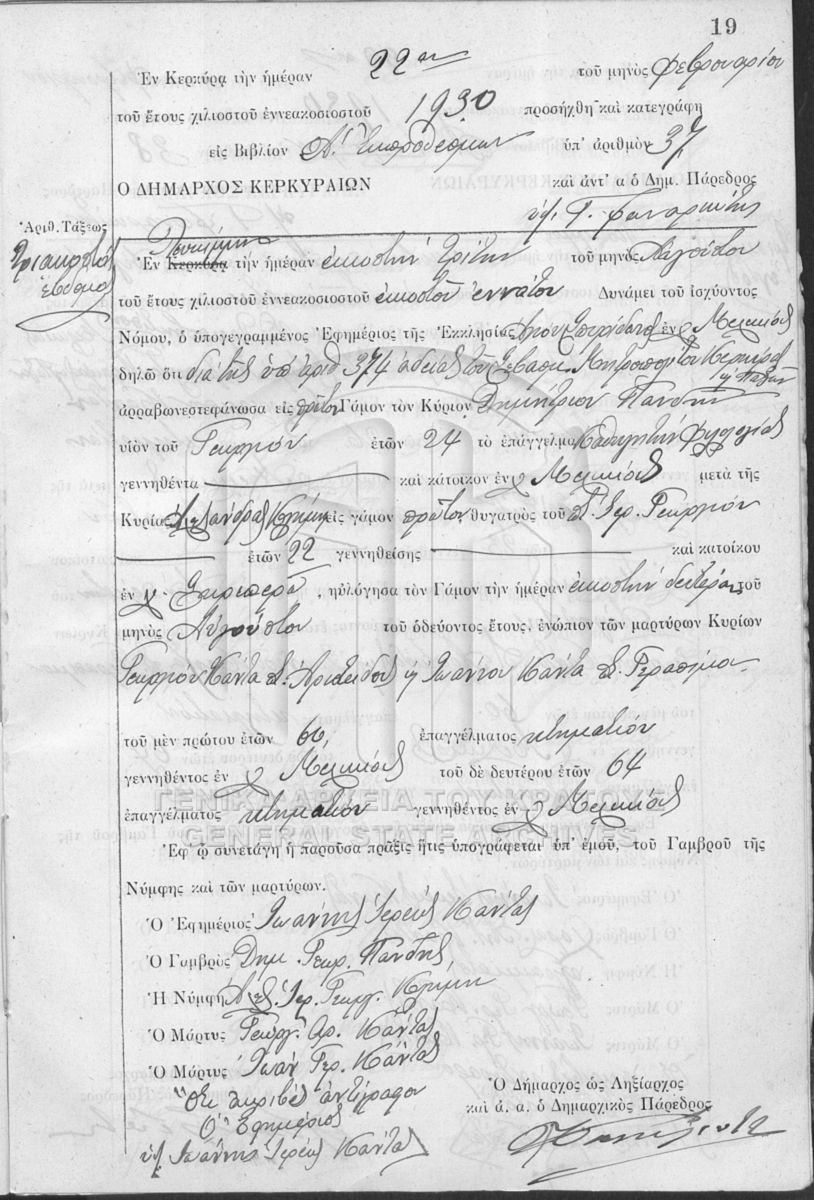 19
Ἐν Κερκύρᾳ τὴν ἡμέραν 22αν τοῦ μηνὸς Φεβρουαρίου
τοῦ ἔτους χιλιοστοῦ ἐννεακοσιοστοῦ 1930 προσήχθη καὶ κατεγράφη
εἰς Βιβλίον Α' Ἐκπροθέσμων ὑπ' ἀριθμὸν 37
Ο ΔΗΜΑΡΧΟΣ ΚΕΡΚΥΡΑΙΩΝ καὶ ἀντ' α ὁ Δημ. Πάρεδρος
Ἀριθ. Τάξεως
Τριακοστὸς
ἕβδομος
Ἐν Κερκύρᾳ τὴν ἡμέραν εἰκοστὴν τρίτην τοῦ μηνὸς Αὐγούστου
τοῦ ἔτους χιλιοστοῦ ἐννεακοσιοστοῦ εἰκοστοῦ ἐννάτου Δυνάμει τοῦ ἰσχύοντος
Νόμου, ὁ ὑπογεγραμμένος Ἐφημέριος τῆς Ἐκκλησίας Ἁγίου Σπυρίδωνος ἐν
δηλῶ ὅτι διὰ τῆς ὑπ' ἀριθ 374 ἀδείας τοῦ Σεβασμ. Μητροπολίτου Κερκύρας
ἀρραβωνεστεφάνωσα εἰς πρῶτον Γάμον τὸν Κύριον Δημήτριον Πανδῆν
υἱὸν τοῦ Γεωργίου ἐτῶν 24 τὸ ἐπάγγελμα Καθηγητὴν Φιλολογίας
γεννηθέντα καὶ κάτοικον ἐν μετὰ τῆς
Κυρίας Ἀλεξάνδρας εἰς γάμον πρῶτον θυγατρὸς τοῦ Γεωργίου
ἐτῶν 22 γεννηθείσης καὶ κατοίκου
ἐν χ. , ηὐλόγησα τὸν Γάμον τὴν ἡμέραν εἰκοστὴν δευτέραν τοῦ
μηνὸς Αὐγούστου τοῦ ὁδεύοντος ἔτους, ἐνώπιον τῶν μαρτύρων Κυρίων
Γεωργίου Κάντα Ἀριστείδου ἢ Ἰωάννου Κάντα Γερασίμου
τοῦ μὲν πρώτου ἐτῶν 60, ἐπαγγέλματος κτηματίου
γεννηθέντος ἐν τοῦ δὲ δευτέρου ἐτῶν 64
ΓΕΝΙΚΑ ΑΡΧΕΙΑ ΤΟΥ ΚΡΑΤΟΥΣ
ἐπαγγέλματος κτηματίου γεννηθέντος ἐν
GENERAL STATE ARCHIVES
Ἐφ' ᾧ συνετάγη ἡ παροῦσα πρᾶξις ἥτις ὑπογράφεται ὑπ' ἐμοῦ, τοῦ Γαμβροῦ τῆς
Νύμφης καὶ τῶν μαρτύρων.
Ὁ Ἐφημέριος Ἰωάννης Ἱερεὺς Κάντας
Ὁ Γαμβρὸς Δημ. Γεωρ. Πανδῆς
Ἡ Νύμφη Ἀλεξ. Ἱερ. Γεωργ.
Ὁ Μάρτυς Γεώργ. Ἀρ. Κάντας
Ὁ Μάρτυς Ἰωάν Γερ. Κάντας
Ὅτι ἀκριβὲς ἀντίγραφον
Ὁ Ἐφημέριος
ὑπ. Ἰωάννης Ἱερεὺς Κάντας
Ὁ Δήμαρχος ὡς Ληξίαρχος
καὶ ἀ. α. ὁ Δημαρχικὸς Πάρεδρος